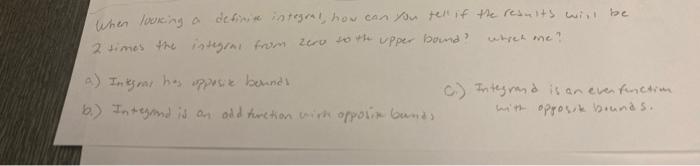 When looking a definite integral, how can you tell if the results will be
2 times the integral from zero to the upper bound? which one?
a.) Integral has opposite bounds
b.) Integrand is an odd function with opposite bounds
c.) Integrand is an even function
with opposite bounds.